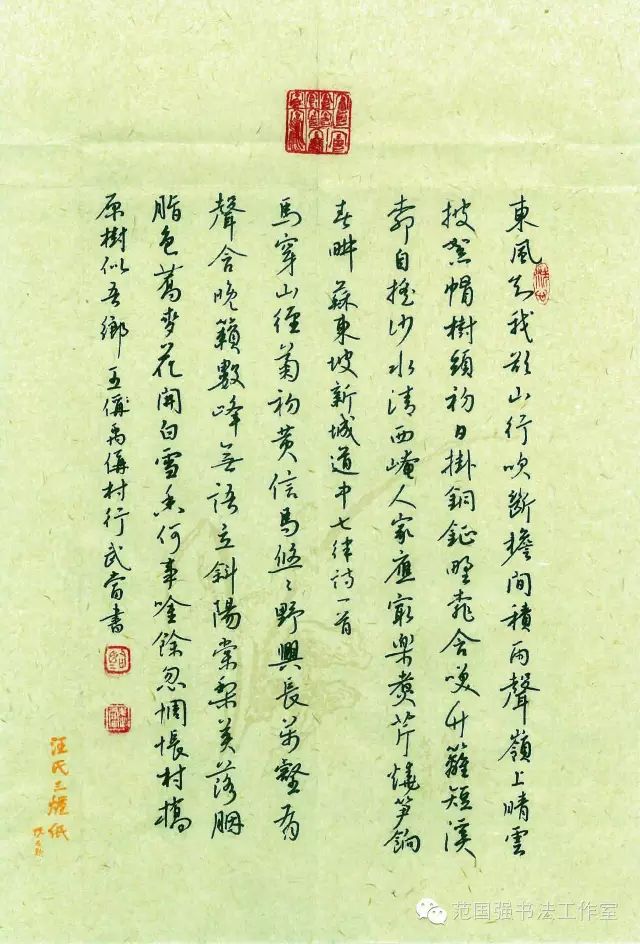 東風知我欲山行吹斷檐間積雨聲嶺上晴雲
披絮帽樹頭初日掛銅鉦野桃含笑竹籬短溪
柳自搖沙水清西崦人家應最樂煮芹燒笋餉
春畊 蘇東坡新城道中七律詩一首
馬穿山徑菊初黃信馬悠々野興長萬壑有
聲含晚籟數峰無語立斜陽棠梨葉落胭
脂色蕎麥花開白雪香何事吟餘忽惆悵村橋
原樹似吾鄉 王偁禹偁村行武富書
汪氏三煙紙
范国强书法工作室